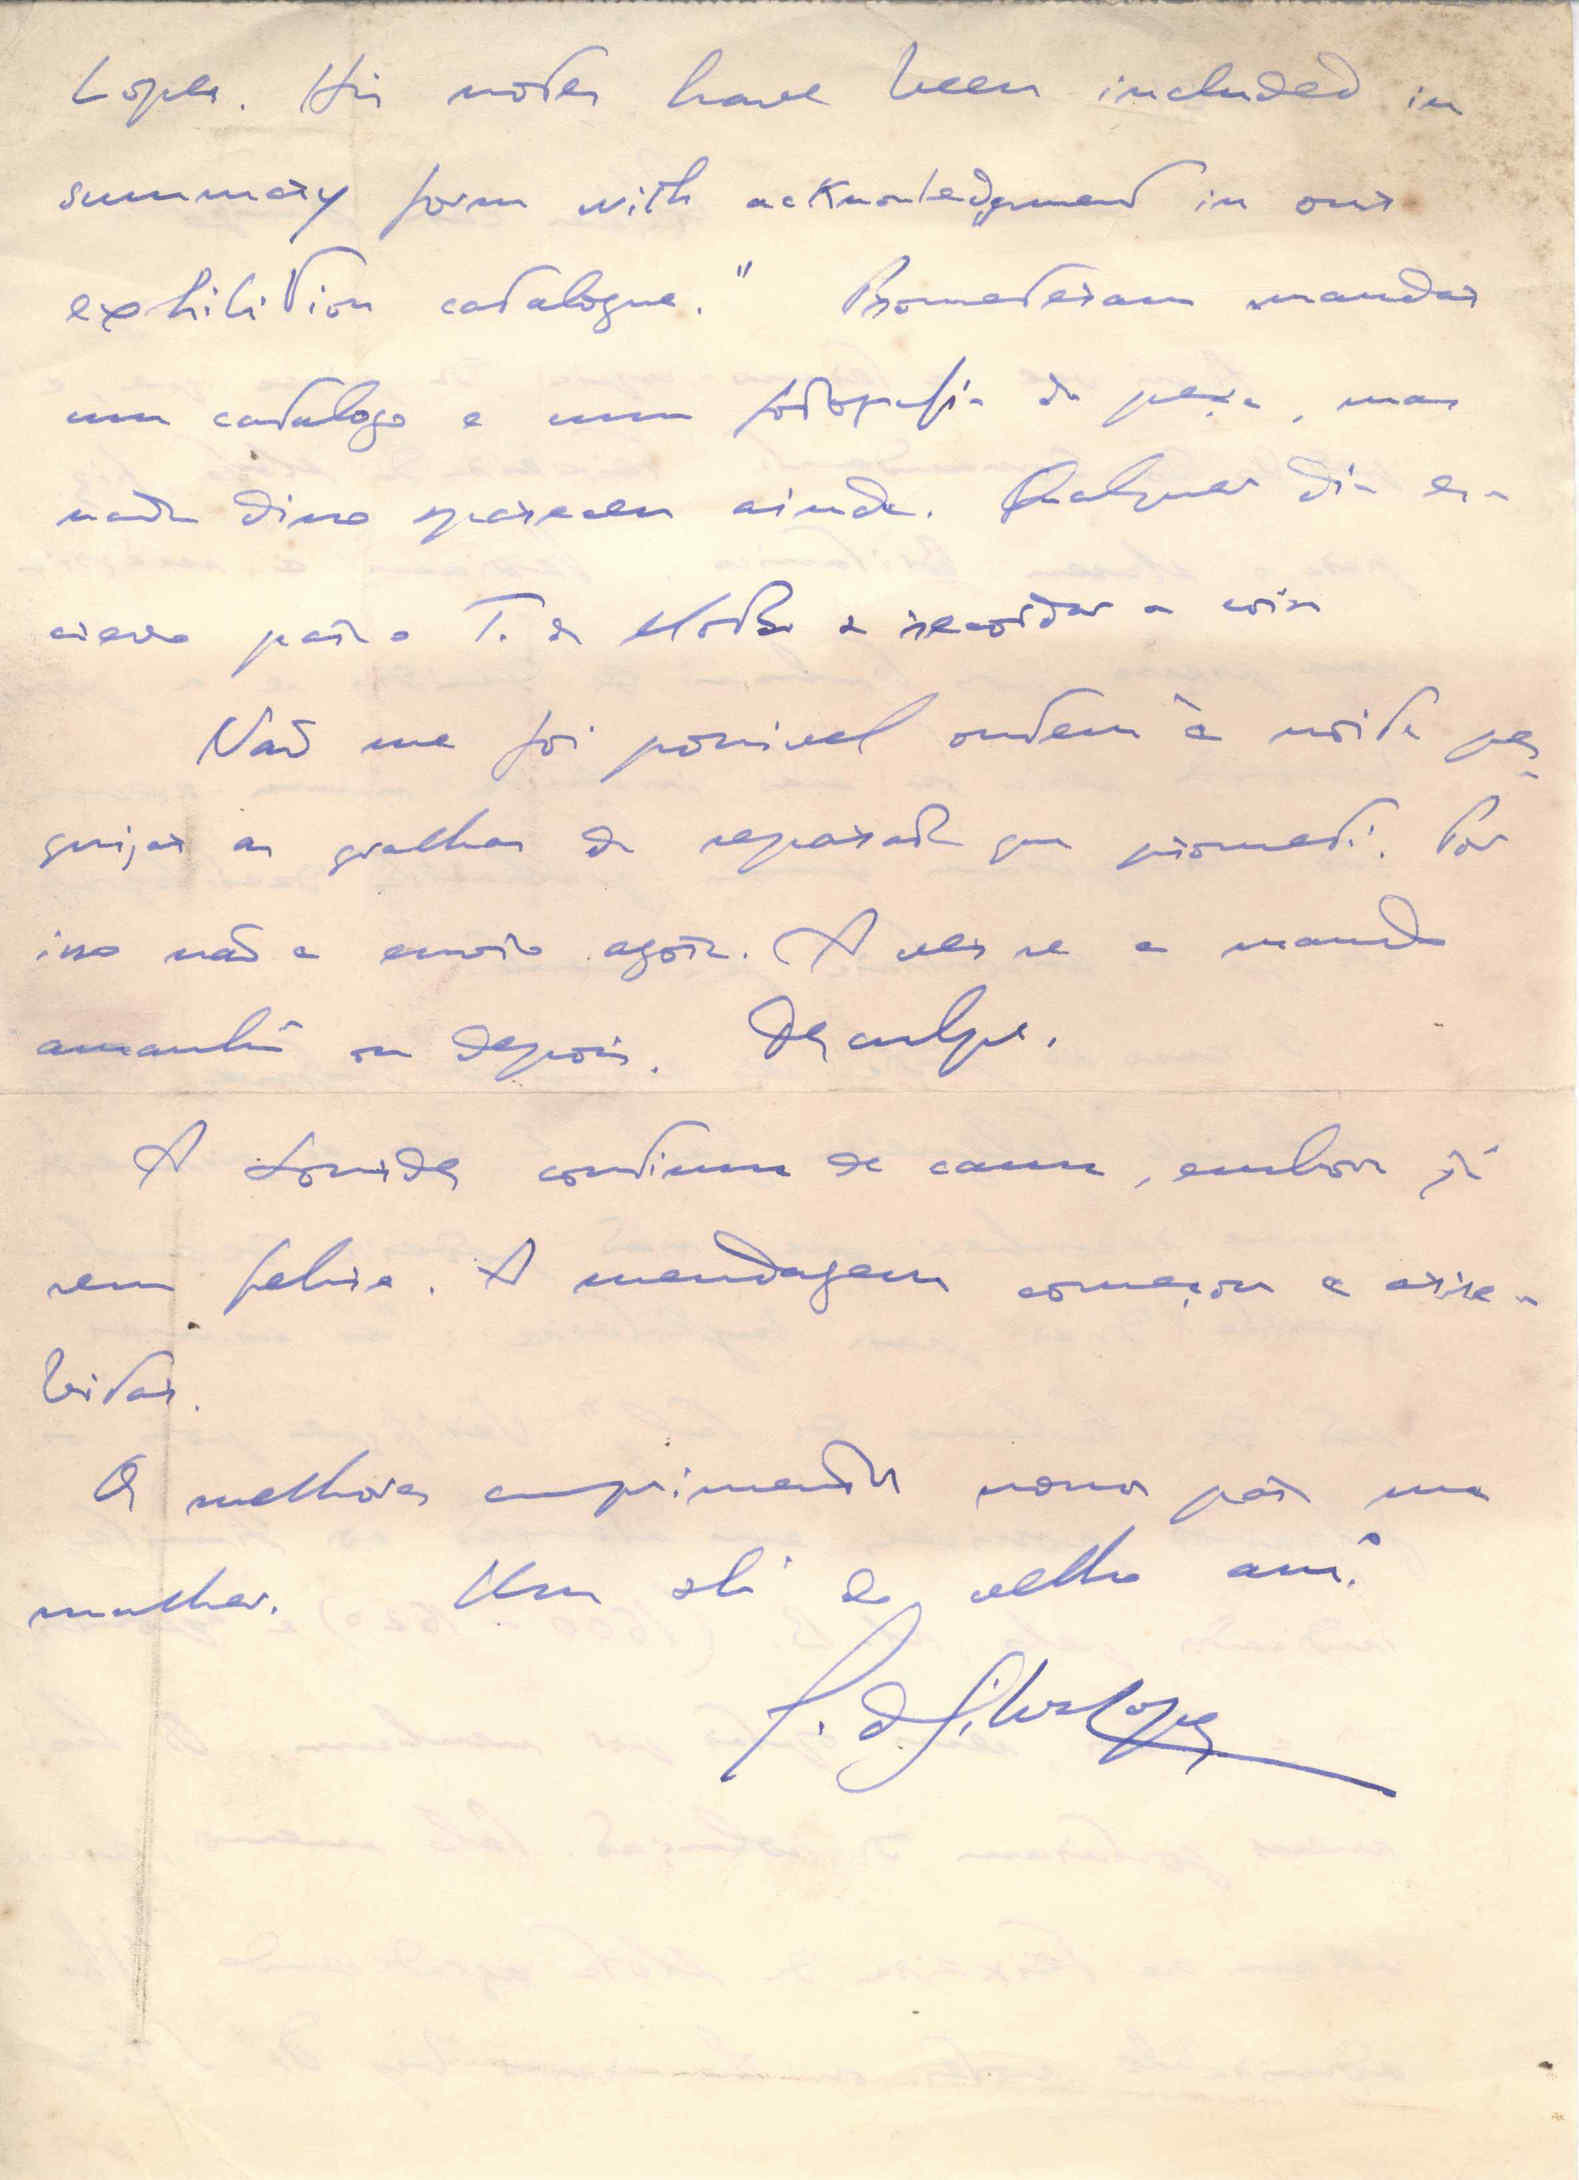 Lopes. His notes have been included in
summary form with acknowledgment in our
exhibition catalogue." Prometeram mandar
um catálogo e uma fotografia da peça, mas
nada disso apareceu ainda. Qualquer dia es-
crevo para o T. da Mota a recordar a coisa
Não me foi possivel ontem à noite pes-
quisar as gralhas da separata que prometi. Por
isso não a envio agora. A ver se a mando
amanhã ou depois. Desculpe.
A Lourdes continua de cama, embora já
sem febre. A mendagem começou a arre-
bitar.
Os melhores cumprimentos nossos para sua
mulher. Um do velho am.º
F. da Silva Lopes